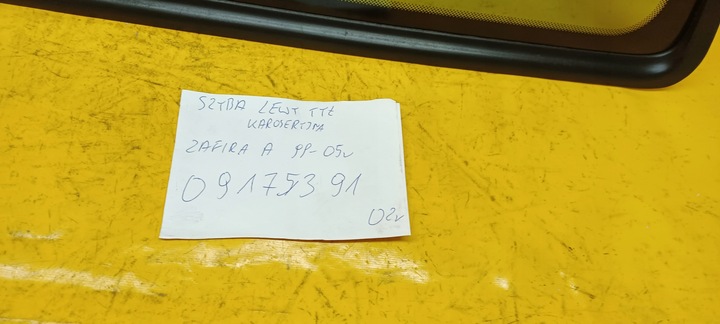 SZYBA LEWY TYŁ
KAROSERYJNA
ZAFIRA A 99-05r
09175391
02r